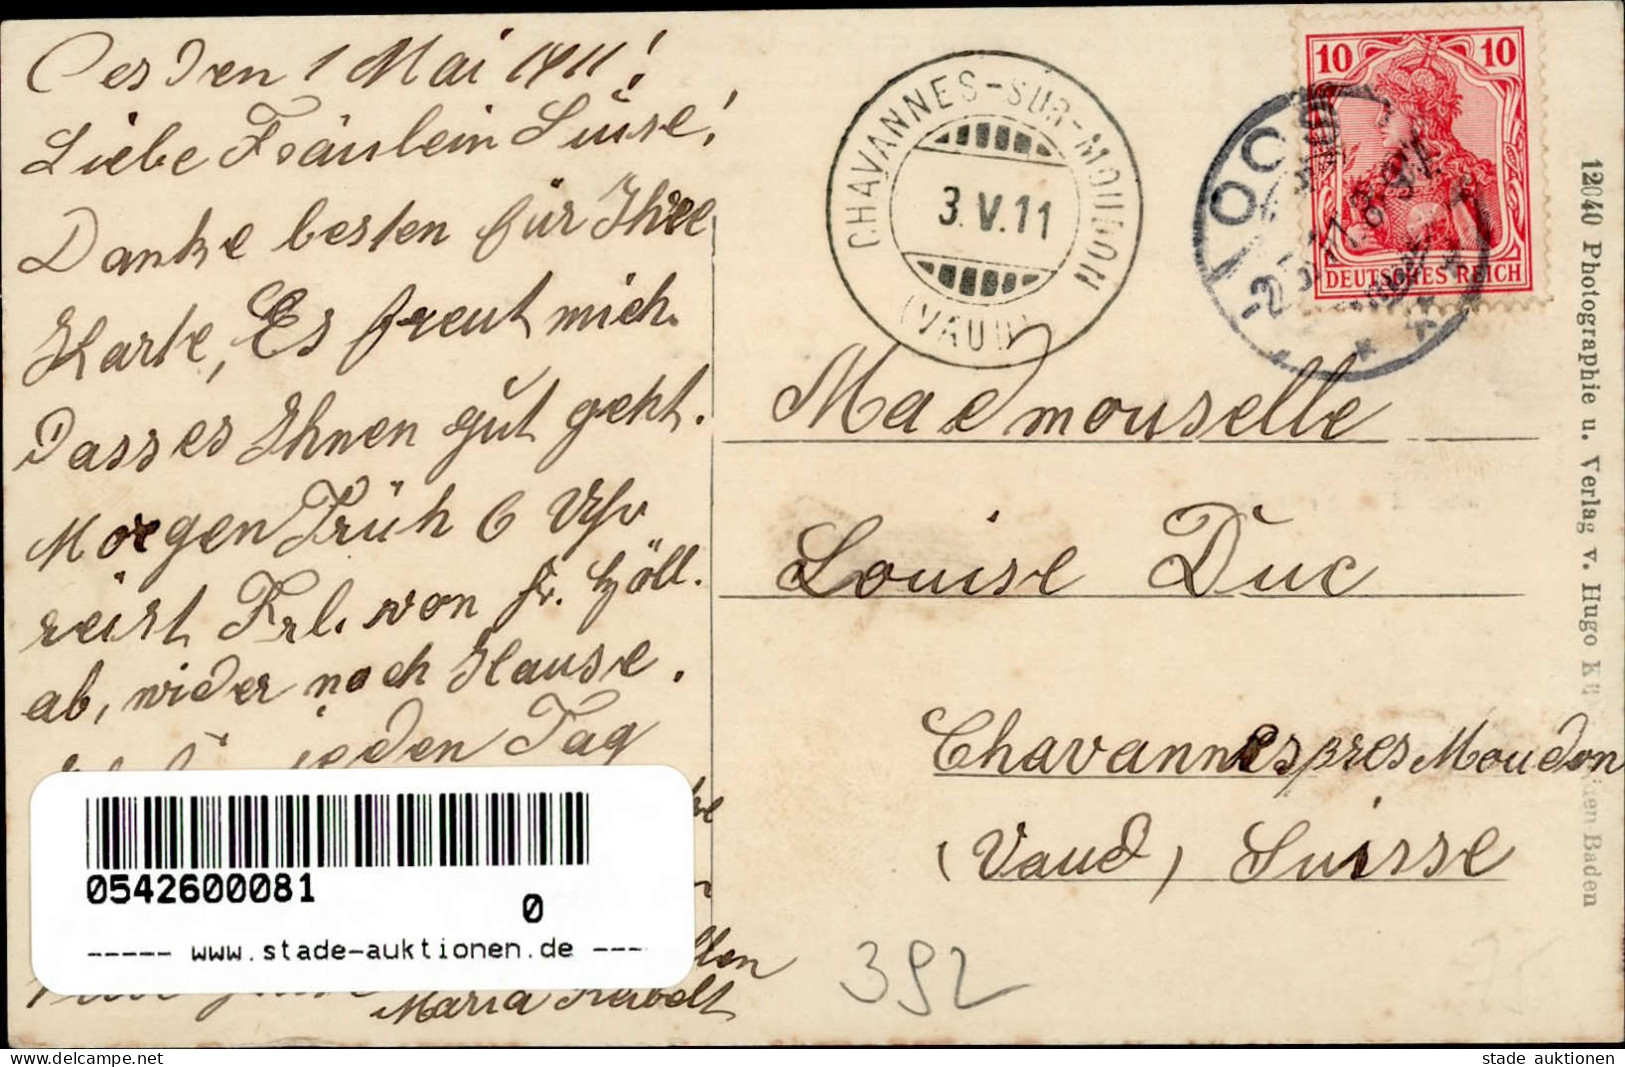 1 Mai 1911!
Liebe Fräulein Luise!
Danke besten für Ihre
Karte, Es freut mich.
Dass es Ihnen gut geht.
Morgen Früh 6 Uhr
reist Frl. von Fr. Höll.
ab, wider nach Hause.
jeden Tag
Maria
CHAVANNES-SUR-MOUDON
3.V.11
(VAUD)
10 10
DEUTSCHES REICH
Mademouselle
Louise Duc
Chavannes pres Moudon
(Vaud) Suisse
392
12040 Photographie u. Verlag v. Hugo
Baden
0542600081
0
----- www.stade-auktionen.de ----
stade auktionen